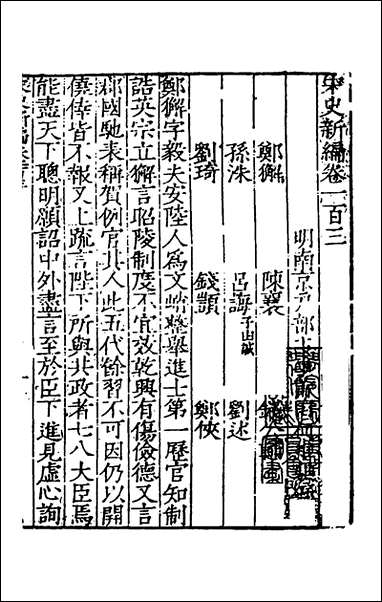 宋史新編卷一百三
明南京戶部主
鄭獬 陳襄 錢
孫洙 呂誨子由誠 劉述
劉琦 錢顗 鄭俠
鄭獬字毅夫安陸人為文峭整舉進士第一歷官知制
誥英宗立獬言昭陵制度不宜效乾興有傷儉德又言
郡國馳表稱賀例官其人此五代餘習不可因仍以開
僥倖皆不報又上疏言陛下所與共政者七八大臣焉
能盡天下聰明願詔中外盡言至於臣下進見虛心詢